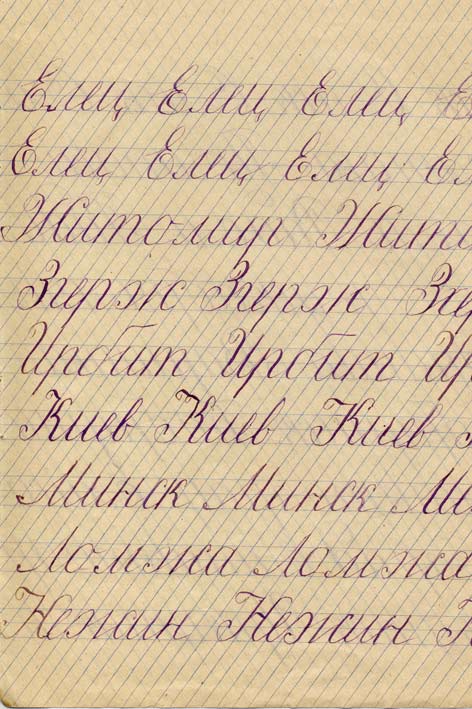 Елец Елец Елец Е
Елец Елец Елец Ел
Житомир Жит
Згерж Згерж Зге
Ирбит Ирбит Ир
Киев Киев Киев
Минск Минск Ми
Ломжа Ломжа
Нежин Нежин Н